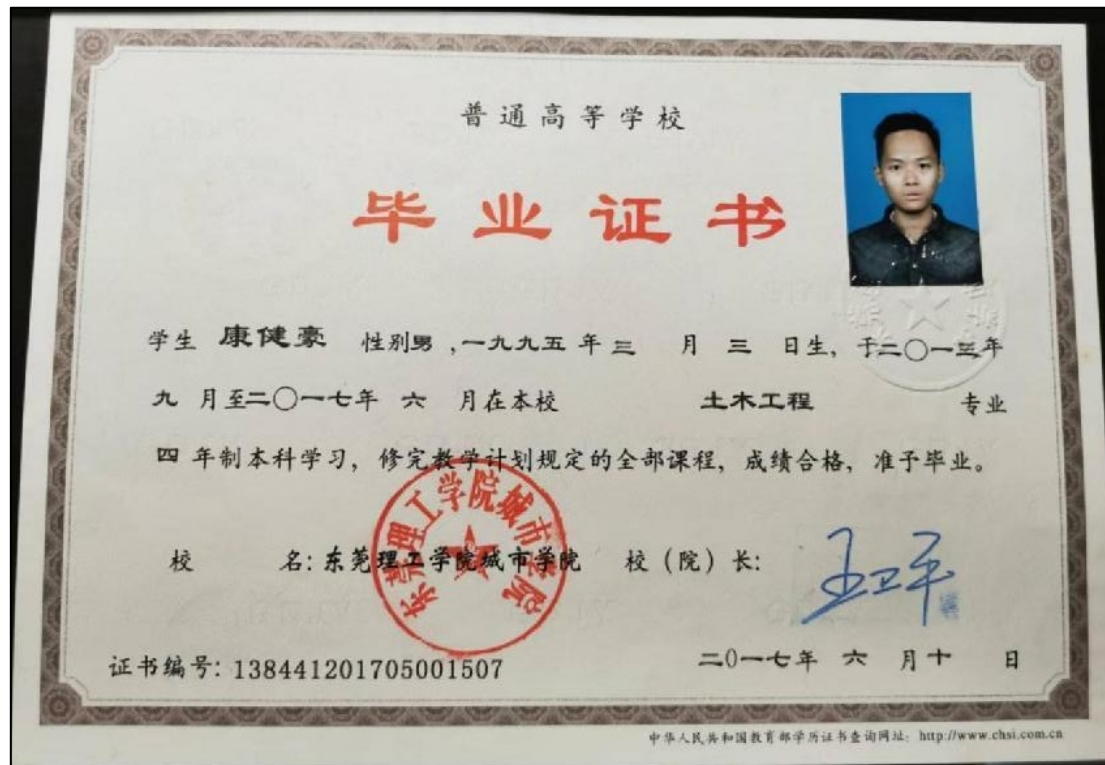 普通高等学校
毕业证书
学生 康健豪 性别男，一九九五年三月三日生，于二〇一三年
九月至二〇一七年六月在本校 土木工程 专业
四年制本科学习，修完教学计划规定的全部课程，成绩合格，准予毕业。
校 名：东莞理工学院城市学院 校（院）长：王卫平
东莞理工学院城市学院
证书编号：138441201705001507 二〇一七年六月十日
中华人民共和国教育部学历证书查询网址：http://www.chsi.com.cn